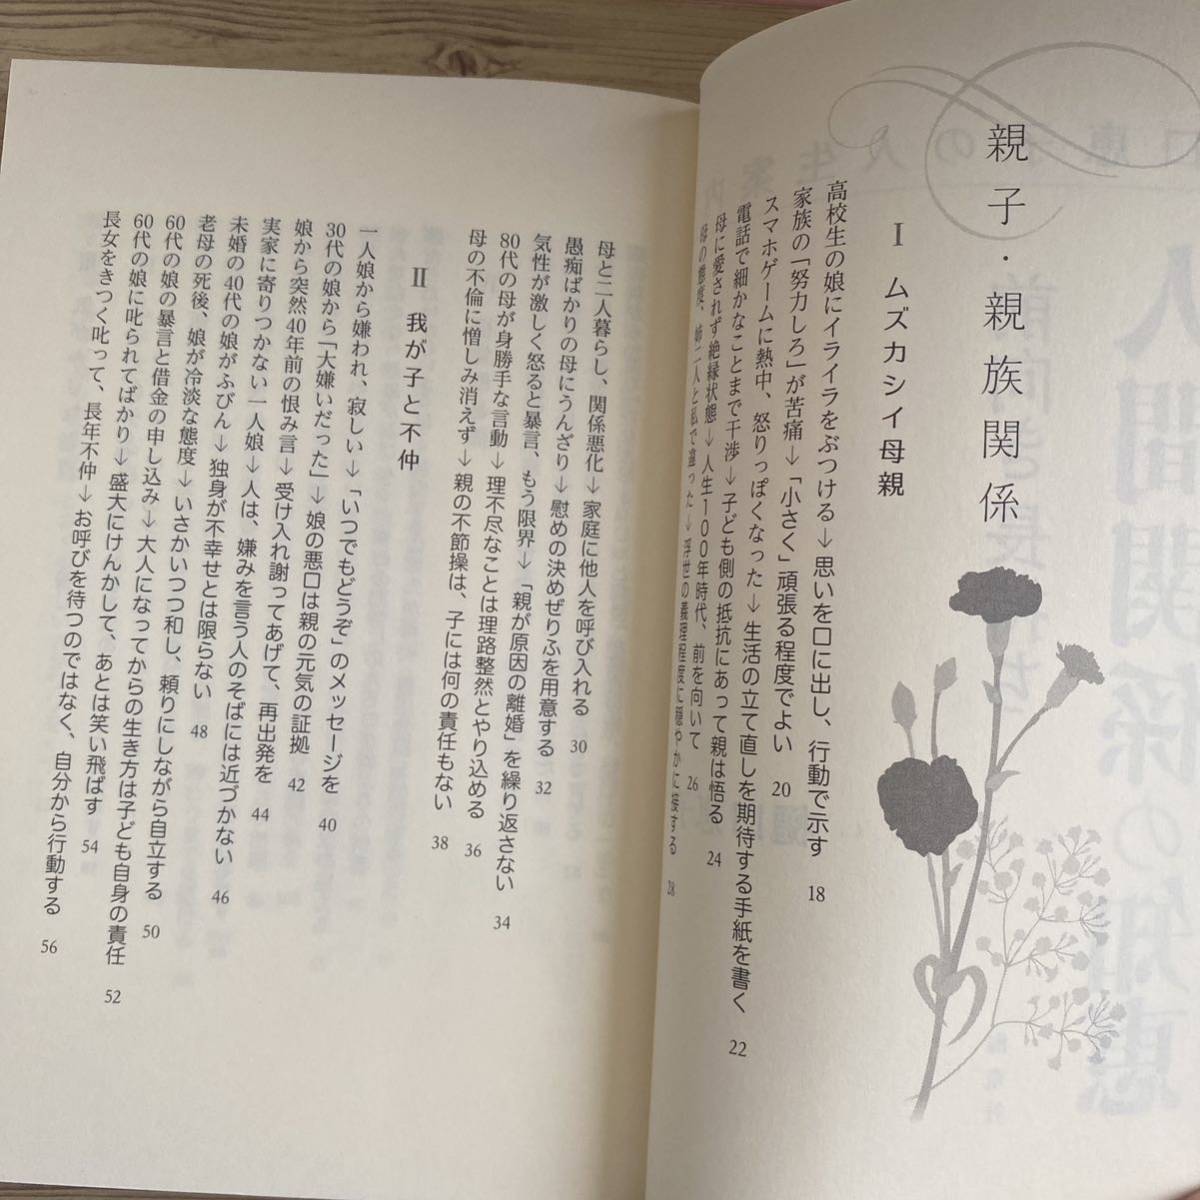 親子・親族関係
Ⅰ ムズカシイ母親
高校生の娘にイライラをぶつける→思いを口に出し、行動で示す 18
家族の「努力しろ」が苦痛→「小さく」頑張る程度でよい 20
スマホゲームに熱中、怒りっぽくなった→生活の立て直しを期待する手紙を書く 22
電話で細かなことまで干渉→子ども側の抵抗にあって親は悟る 24
母に愛されず絶縁状態→人生100年時代、前を向いて 26
母の態度、姉二人と私で違った→浮世の義理程度に穏やかに接する 28
母と二人暮らし、関係悪化→家庭に他人を呼び入れる 30
愚痴ばかりの母にうんざり→慰めの決めぜりふを用意する 32
気性が激しく怒ると暴言、もう限界→「親が原因の離婚」を繰り返さない 34
80代の母が身勝手な言動→理不尽なことは理路整然とやり込める 36
母の不倫に憎しみ消えず→親の不節操は、子には何の責任もない 38
Ⅱ 我が子と不仲
一人娘から嫌われ、寂しい→「いつでもどうぞ」のメッセージを 40
30代の娘から「大嫌いだった」→娘の悪口は親の元気の証拠 42
娘から突然40年前の恨み言→受け入れ謝ってあげて、再出発を 44
実家に寄りつかない一人娘→人は、嫌みを言う人のそばには近づかない 46
未婚の40代の娘がふびん→独身が不幸せとは限らない 48
老母の死後、娘が冷淡な態度→いさかいつつ和し、頼りにしながら自立する 50
60代の娘の暴言と借金の申し込み→大人になってからの生き方は子ども自身の責任 52
60代の娘に叱られてばかり→盛大にけんかして、あとは笑い飛ばす 54
長女をきつく叱って、長年不仲→お呼びを待つのではなく、自分から行動する 56